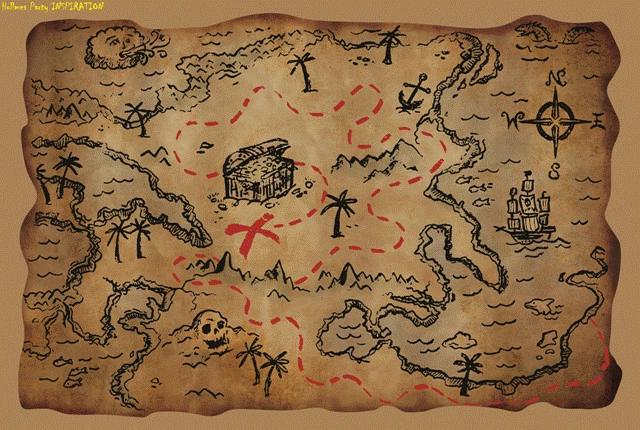 Hollmes Party INSPIRATION
N
W
E
S